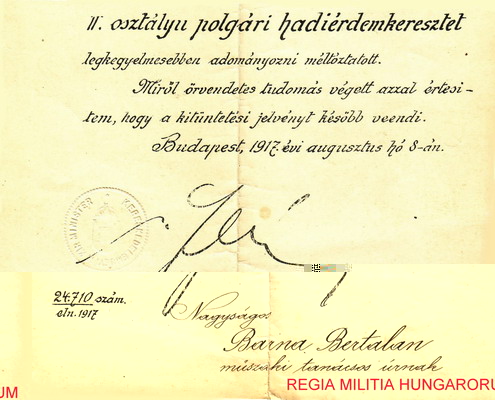 II. osztályu polgári hadiérdemkeresztet
legkegyelmesebben adományozni méltóztatott.
Miről örvendetes tudomás végett azzal értesi-
tem, hogy a kitüntetési jelvényt később veendi.
Budapest, 1917. évi augusztus hó 8-án.
24.710 szám.
eln. 1917
Nagyságos
Barna Bertalan
műszaki tanácsos úrnak
UM
REGIA MILITIA HUNGARORU